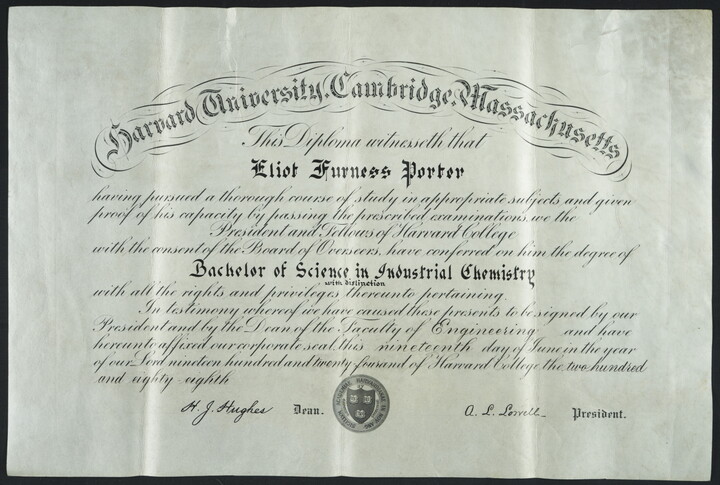 Harvard University, Cambridge, Massachusetts
This Diploma witnesseth that
Eliot Furness Porter
having pursued a thorough course of study in appropriate subjects and given
proof of his capacity by passing the prescribed examinations, we the
President and Fellows of Harvard College
with the consent of the Board of Overseers, have conferred on him the degree of
Bachelor of Science in Industrial Chemistry
with distinction
with all the rights and privileges thereunto pertaining.
In testimony whereof we have caused these presents to be signed by our
President and by the Dean of the Faculty of Engineering and have
hereunto affixed our corporate seal this nineteenth day of June in the year
of our Lord nineteen hundred and twenty-four and of Harvard College the two hundred
and eighty-eighth
H. J. Hughes Dean. A. L. Lowell President.